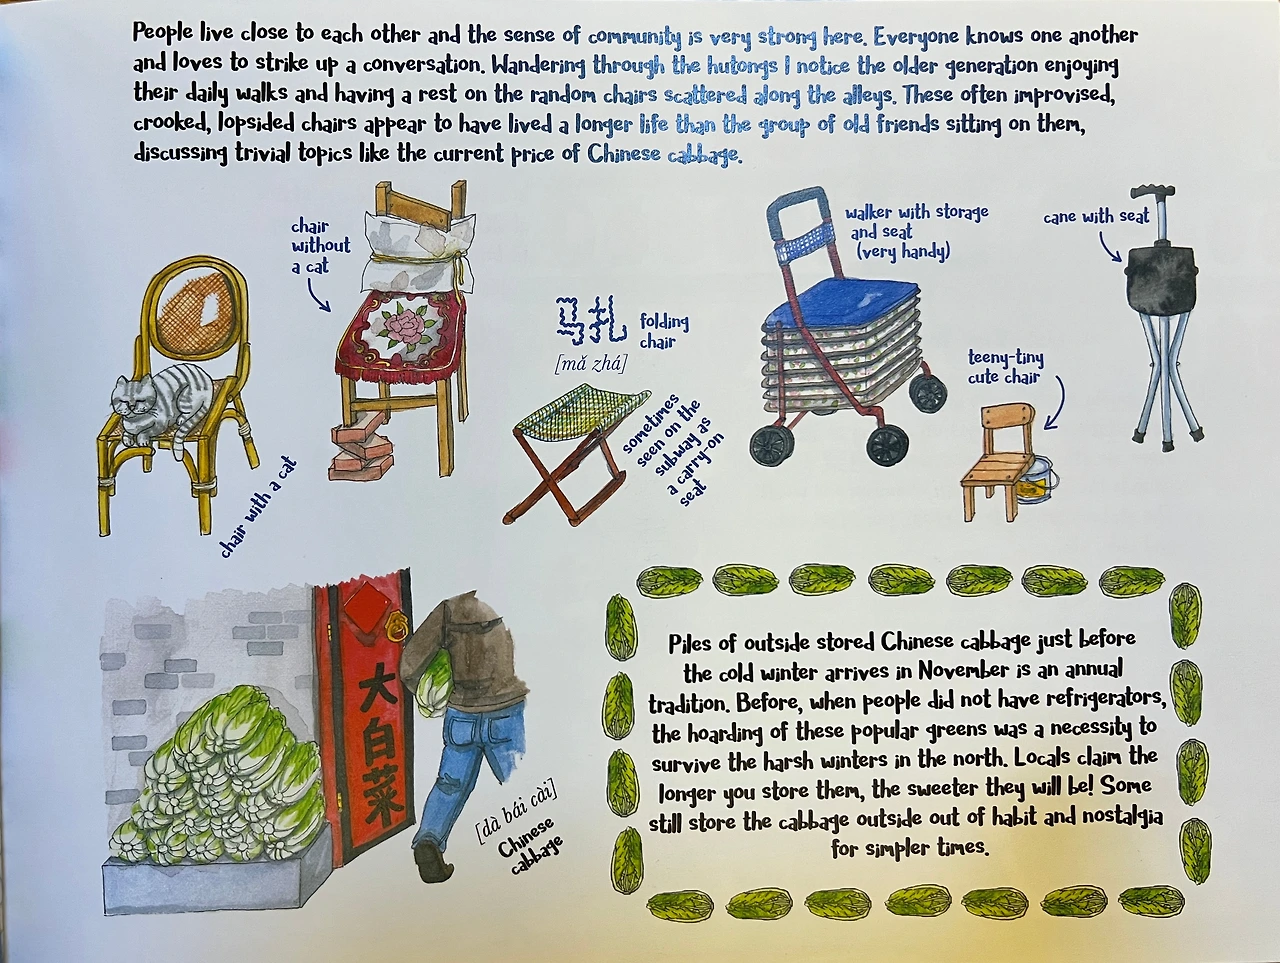 People live close to each other and the sense of community is very strong here. Everyone knows one another
and loves to strike up a conversation. Wandering through the hutongs I notice the older generation enjoying
their daily walks and having a rest on the random chairs scattered along the alleys. These often improvised,
crooked, lopsided chairs appear to have lived a longer life than the group of old friends sitting on them,
discussing trivial topics like the current price of Chinese cabbage.
chair
without
a cat
chair with a cat
马扎
[mǎ zhá]
folding
chair
sometimes
seen on the
subway as
a carry-on
seat
walker with storage
and seat
(very handy)
cane with seat
teeny-tiny
cute chair
大白菜
[dà bái cài]
Chinese
cabbage
Piles of outside stored Chinese cabbage just before
the cold winter arrives in November is an annual
tradition. Before, when people did not have refrigerators,
the hoarding of these popular greens was a necessity to
survive the harsh winters in the north. Locals claim the
longer you store them, the sweeter they will be! Some
still store the cabbage outside out of habit and nostalgia
for simpler times.